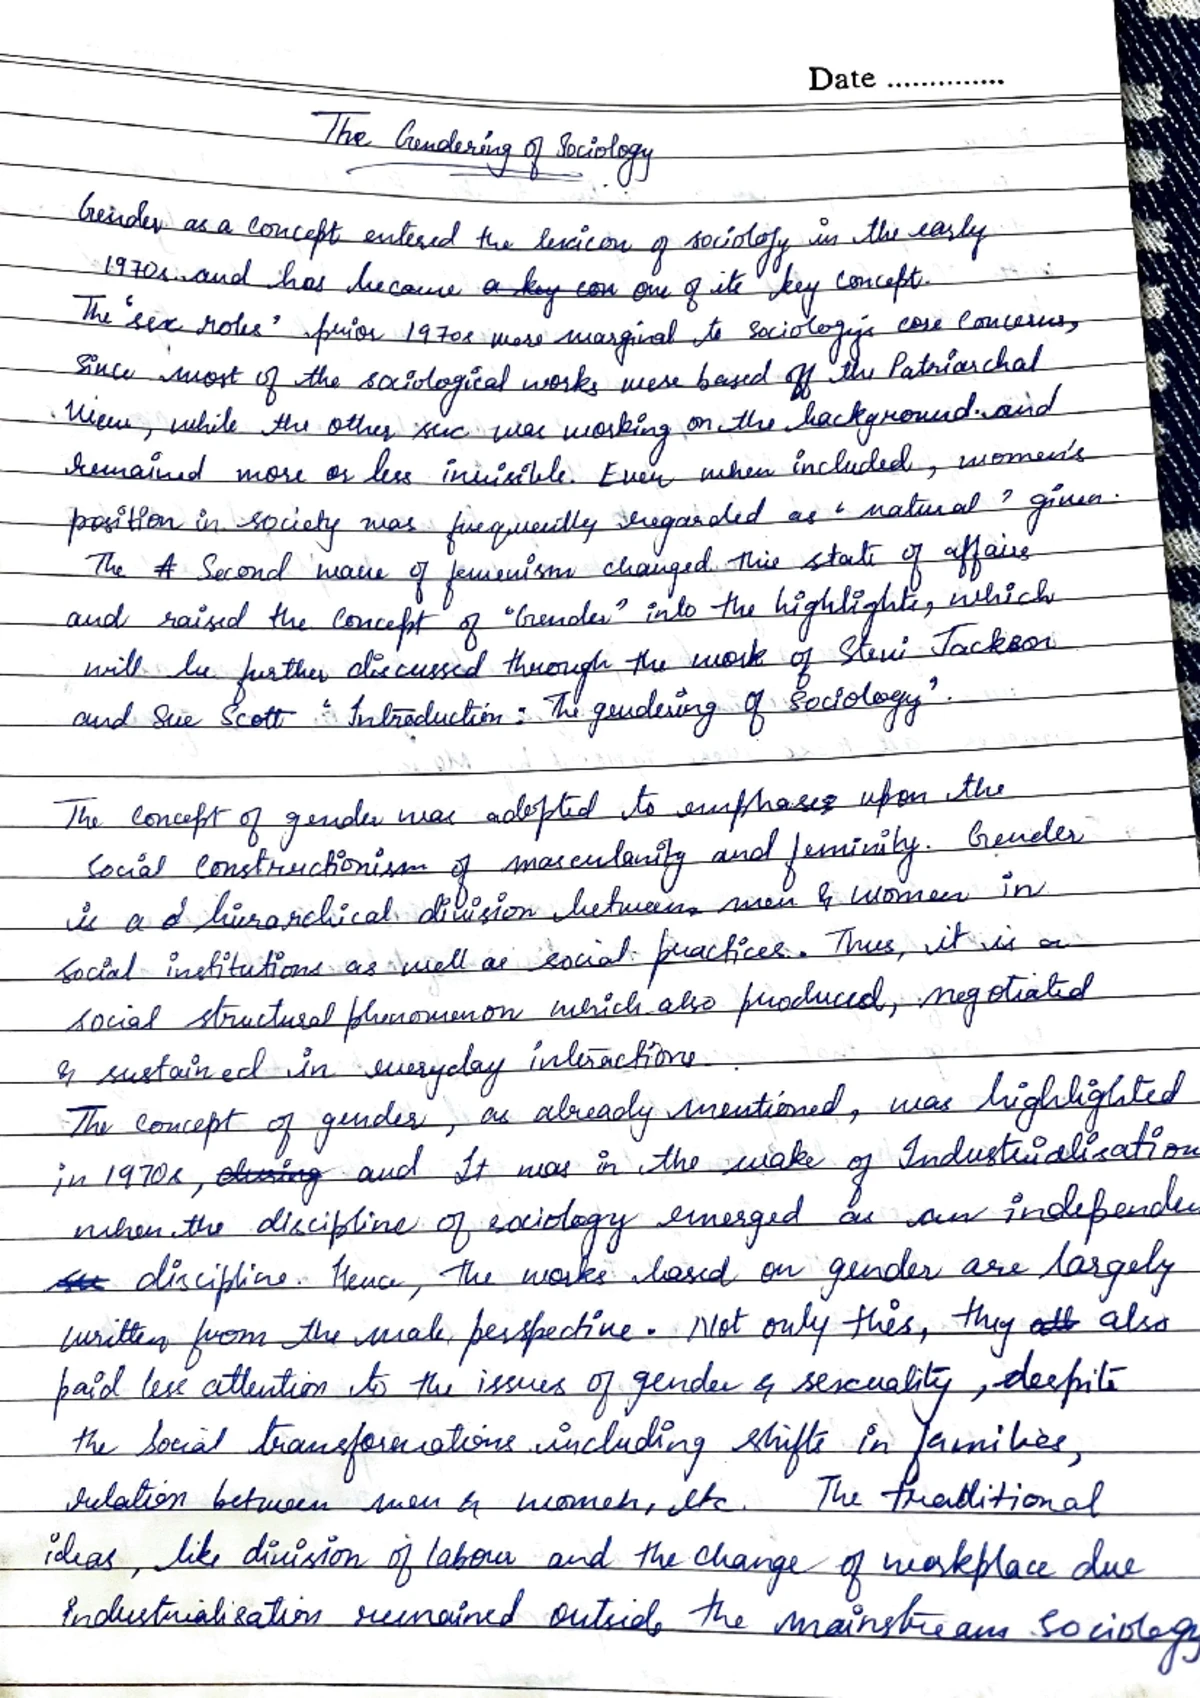 Date ..............
The Gendering of Sociology
Gender as a concept entered the lexicon of sociology in the early
1970s and has became a key con one of its key concept.
The 'sex roles' prior 1970s were marginal to sociology's core concerns,
Since most of the sociological works were based off the Patriarchal
View, while the other sex was working on the background and
remained more or less invisible. Even when included, women's
position in society was frequently regarded as 'natural' given.
The Second wave of femenism changed this state of affairs
and raised the concept of "Gender" into the highlights, which
will be further discussed through the work of Stevi Jackson
and Sue Scott 'Introduction: The gendering of Sociology'.
The concept of gender was adopted to emphases upon the
social constructionism of masculanity and feminity. Gender
is a d hierarchical division between men & women in
social institutions as well as social practices. Thus, it is a
social structural phenomenon which also produced, negotiated
& sustained in everyday interactions.
The concept of gender, as already mentioned, was highlighted
in 1970s, during and It was in the wake of Industrialisation
when the discipline of sociology emerged as an independen
discipline. Hence, the works based on gender are largely
written from the male perspective. Not only this, they also
paid less attention to the issues of gender & sexuality, despite
the social transformations including shifts in families,
relation between men & women, etc. The traditional
ideas, like division of labour and the change of workplace due
industrialisation remained outside the mainstream sociology